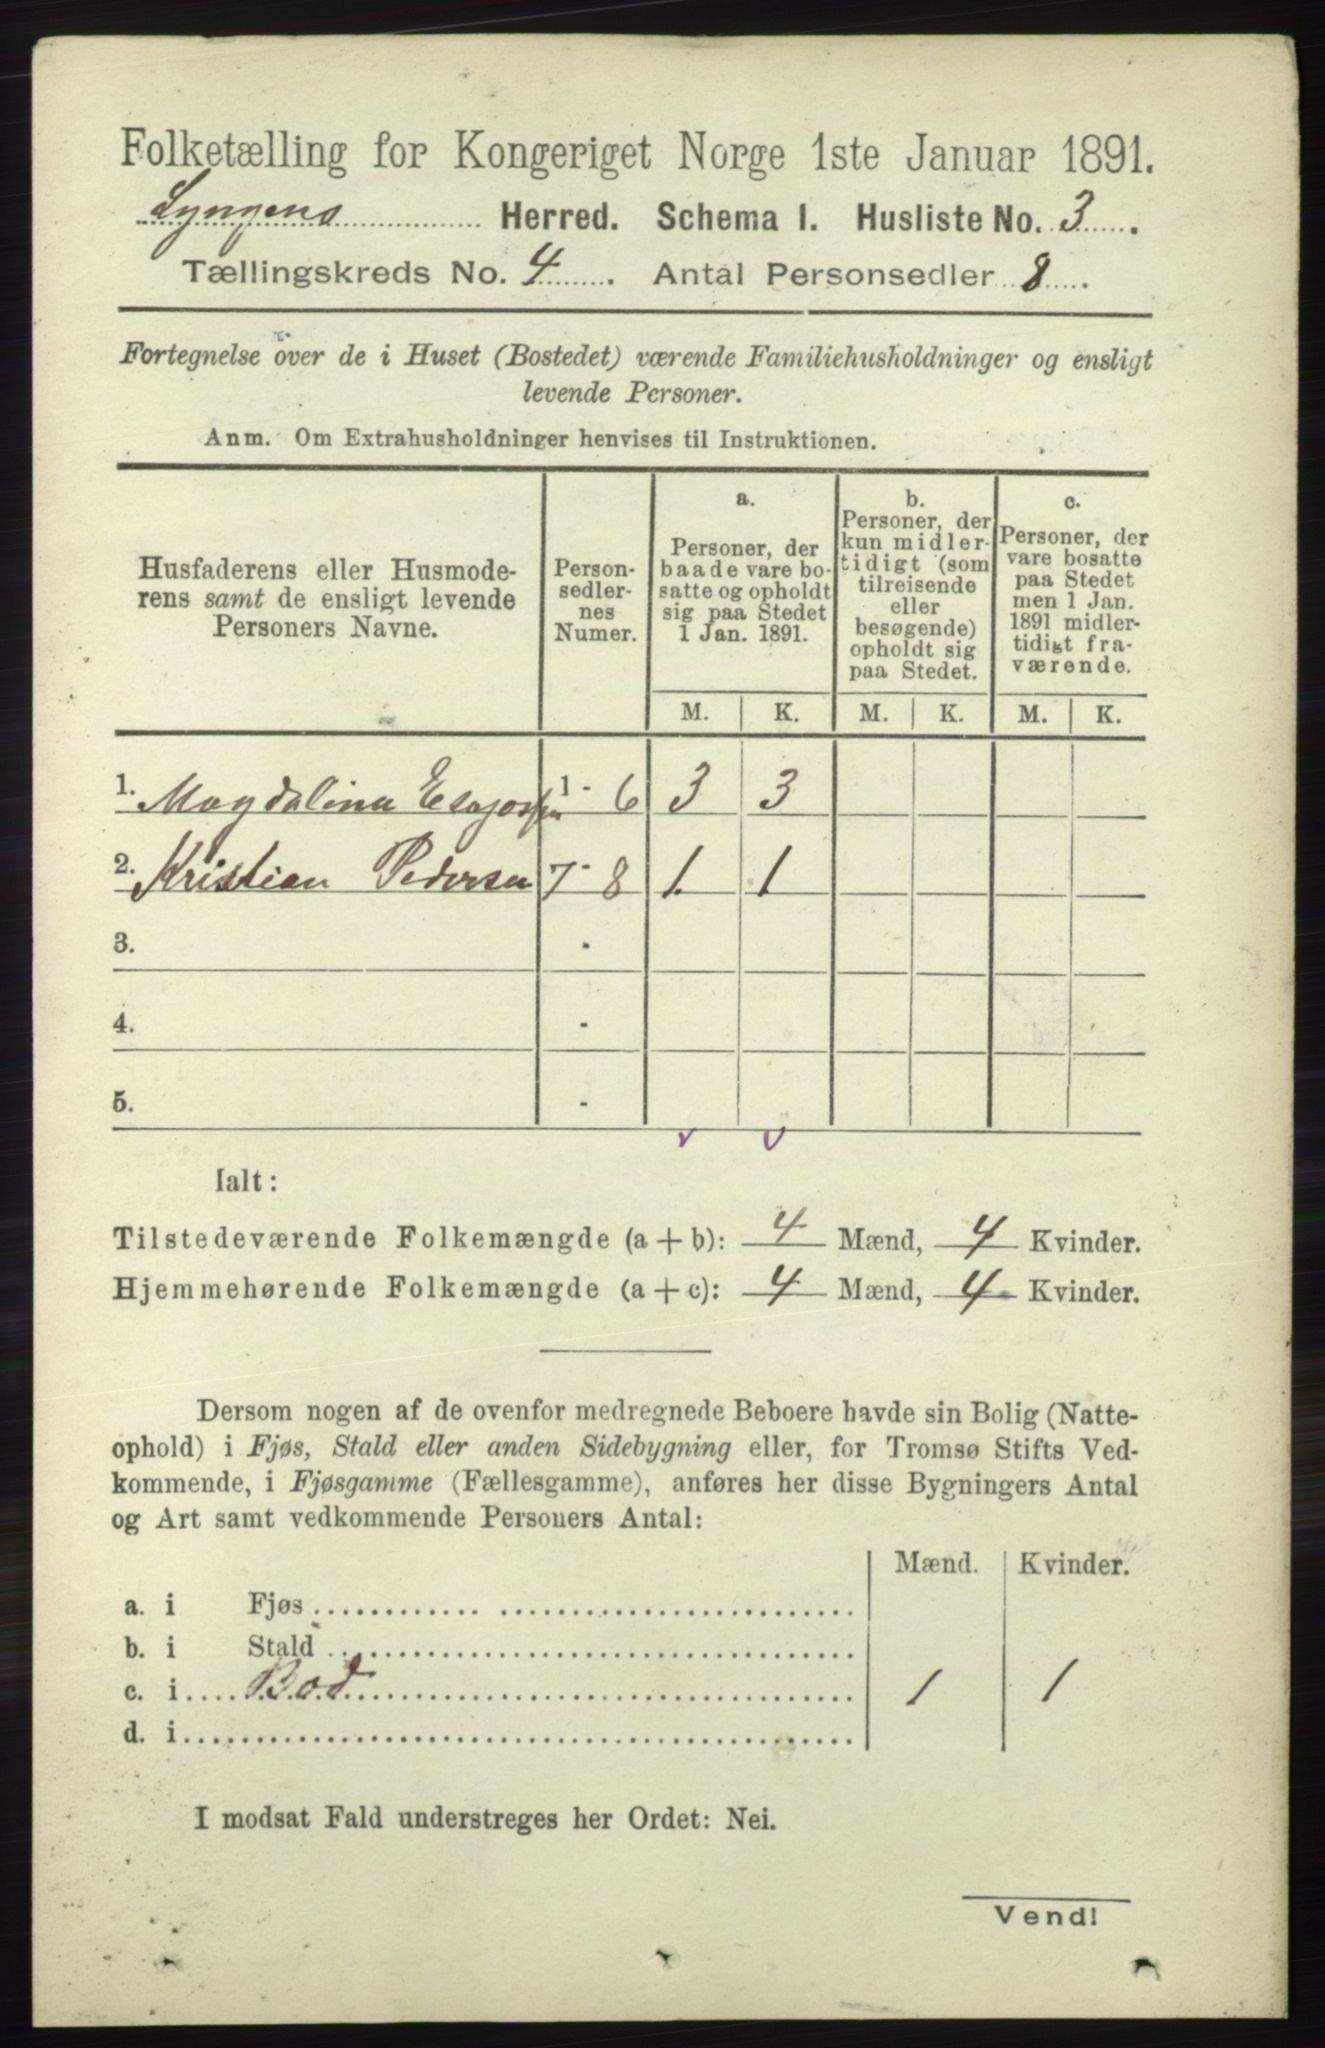 Folketælling for Kongeriget Norge 1ste Januar 1891.
Lyngens Herred. Schema I. Husliste No. 3.
Tællingskreds No. 4. Antal Personsedler 8.
Fortegnelse over de i Huset (Bostedet) værende Familiehusholdninger og ensligt
levende Personer.
Anm. Om Extrahusholdninger henvises til Instruktionen.
Husfaderens eller Husmode-
rens samt de ensligt levende
Personers Navne.
Person-
sedler-
nes
Numer.
a.
Personer, der
baade vare bo-
satte og opholdt
sig paa Stedet
1 Jan. 1891.
b.
Personer, der
kun midler-
tidigt (som
tilreisende
eller
besøgende)
opholdt sig
paa Stedet.
c.
Personer, der
vare bosatte
paa Stedet
men 1 Jan.
1891 midler-
tidigt fra-
værende.
M. K. M. K. M. K.
1. Magdalina 1 - 6 3 3
2. Kristian Pedersen 7 - 8 1 1
3. -
4. -
5. -
Ialt:
Tilstedeværende Folkemængde (a + b): 4 Mænd, 4 Kvinder.
Hjemmehørende Folkemængde (a + c): 4 Mænd, 4 Kvinder.
Dersom nogen af de ovenfor medregnede Beboere havde sin Bolig (Natte-
ophold) i Fjøs, Stald eller anden Sidebygning eller, for Tromsø Stifts Ved-
kommende, i Fjøsgamme (Fællesgamme), anføres her disse Bygningers Antal
og Art samt vedkommende Personers Antal:
Mænd. Kvinder.
a. i Fjøs
b. i Stald
c. i Bod 1 1
d. i
I modsat Fald understreges her Ordet: Nei.
Vend!